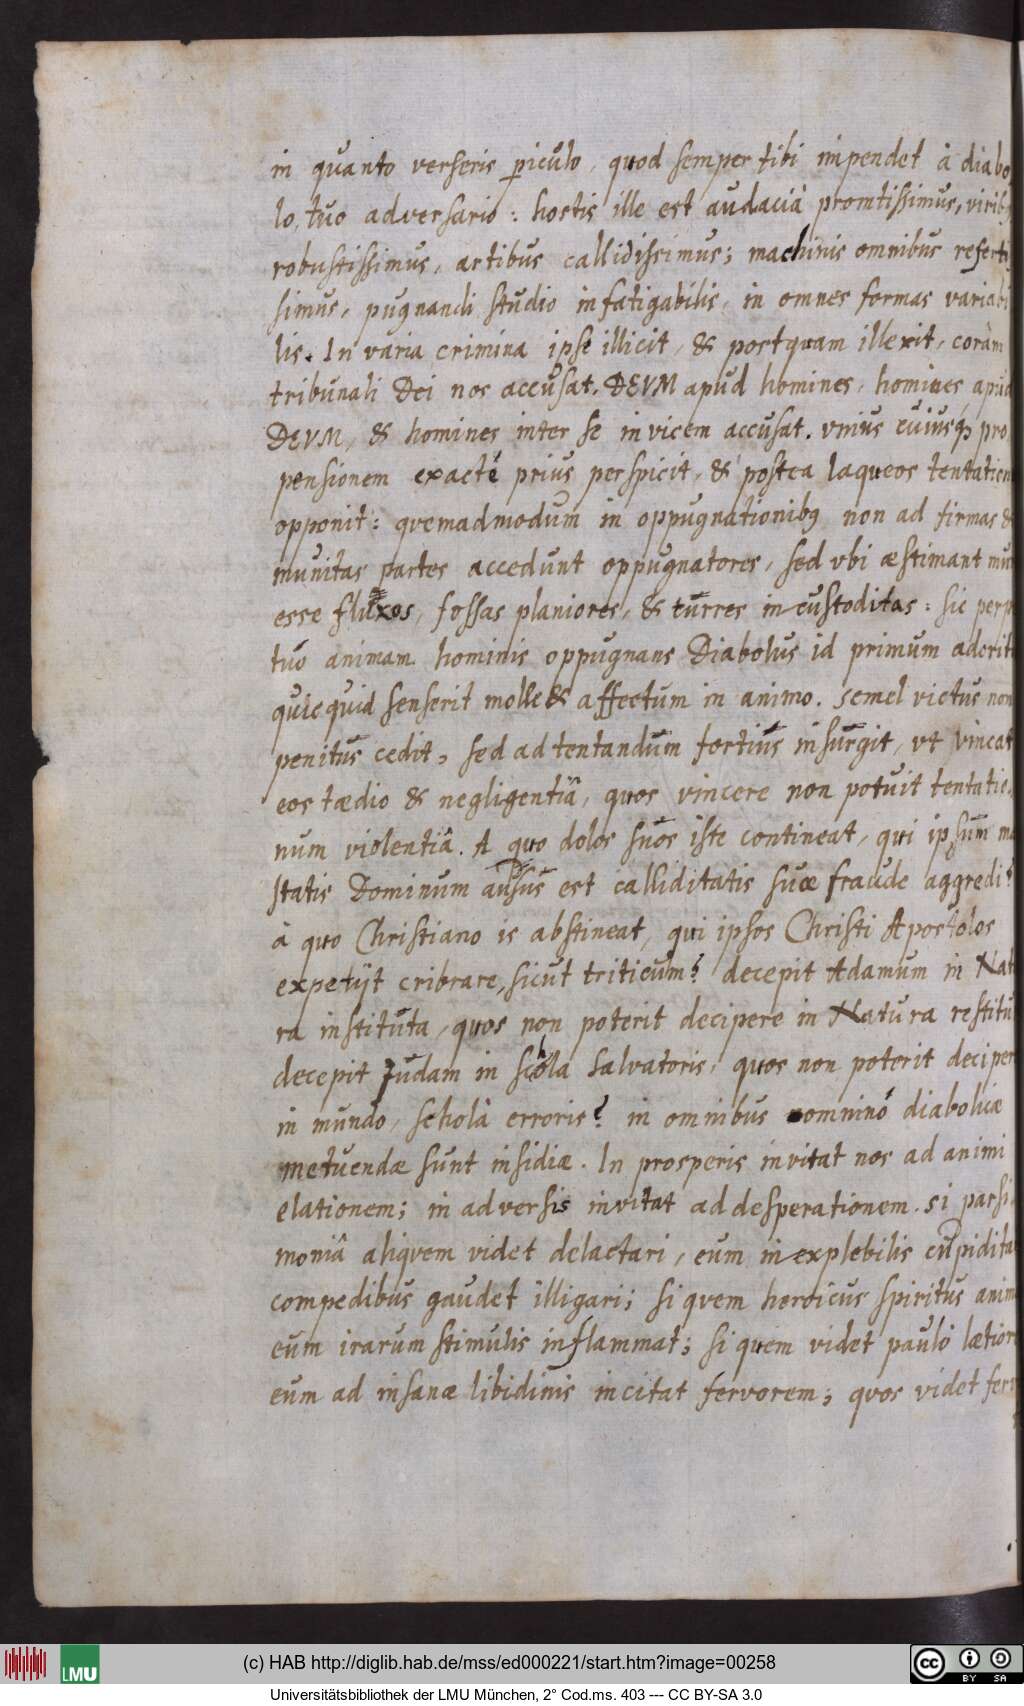 in quanto verseris piculo, quod semper tibi impendet à diabo
lo, tuo adversario: hostis ille est audaciâ promtissimus, virib
robustissimus, artibus callidissimus; machinis omnibus referti
simus, pugnandi studio infatigabilis, in omnes formas variabi
lis. In varia crimina ipse illicit, & postquam illexit, coràm
tribunali Dei nos accusat. DEVM apud homines, homines apud
DEVM, & homines inter se invicem accusat. vnius cuiusq pro
pensionem exactè prius perspicit, & postea laqueos tentation
opponit: quemadmodum in oppugnationibq non ad firmas &
munitas partes accedunt oppugnatores, sed vbi æstimant mu
esse fluxos, fossas planiores, & turres incustoditas: sic perp
tuò animam hominis oppugnans Diabolus id primum adorit
quicquid senserit molle & affectum in animo. semel victus non
penitus cedit, sed ad tentandum fortius insurgit, vt vincat
eos tædio & negligentiâ, quos vincere non potuit tentatio
num violentiâ. A quo dolos suos iste contineat, qui ipsum ma
statis Dominum ausus est calliditatis suæ fraude aggredi?
à quo Christiano is abstineat, qui ipsos Christi Apostolos
expetijt cribrare, sicut triticum? decepit Adamum in Nat
ra instituta, quos non poterit decipere in Natura restitu
decepit Judam in schola Salvatoris, quos non poterit deciper
in mundo, scholâ erroris? in omnibus omninò diabolicæ
metuendæ sunt insidiæ. In prosperis invitat nos ad animi
elationem; in adversis invitat ad desperationem. si parsi
moniâ aliquem videt delactari, eum inexplebilis cupidita
compedibus gaudet illigari; si quem heroicus spiritus anim
eum irarum stimulis inflammat; si quem videt paulò lætior
eum ad insanæ libidinis incitat fervorem; quos videt ferv
(c) HAB http://diglib.hab.de/mss/ed000221/start.htm?image=00258
LMU
CC BY SA
Universitätsbibliothek der LMU München, 2° Cod.ms. 403 --- CC BY-SA 3.0